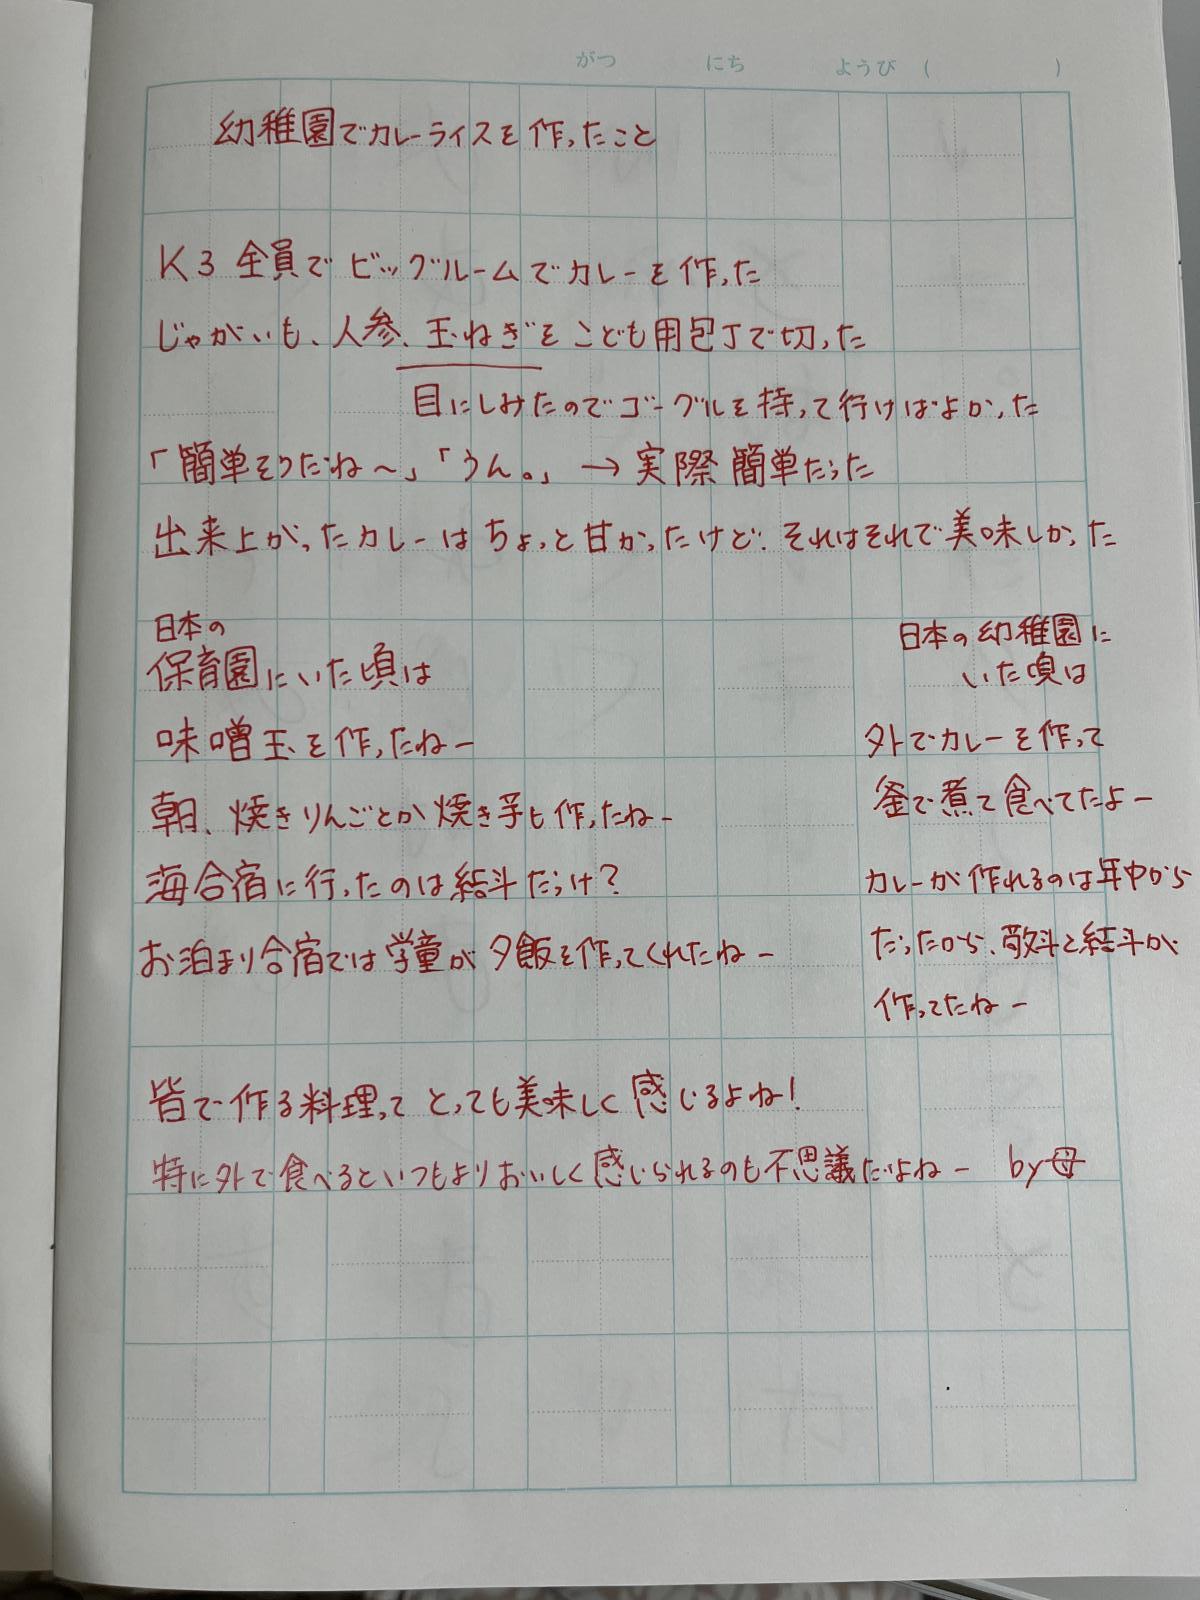 がつ にち ようび ( )
幼稚園でカレーライスを作ったこと
K3 全員でビッグルームでカレーを作った
じゃがいも、人参、玉ねぎをこども用包丁で切った
目にしみたのでゴーグルを持って行けばよかった
「簡単そうだね〜」「うん。」→実際簡単だった
出来上がったカレーはちょっと甘かったけど、それはそれで美味しかった
日本の
保育園にいた頃は
味噌玉を作ったねー
朝、焼きりんごとか焼き芋も作ったねー
海合宿に行ったのは結斗だっけ?
お泊まり合宿では学童が夕飯を作ってくれたねー
日本の幼稚園に
いた頃は
外でカレーを作って
釜で煮て食べてたよー
カレーが作れるのは年中から
だったから、敬斗と結斗が
作ってたねー
皆で作る料理ってとっても美味しく感じるよね!
特に外で食べるといつもよりおいしく感じられるのも不思議だよねー by母